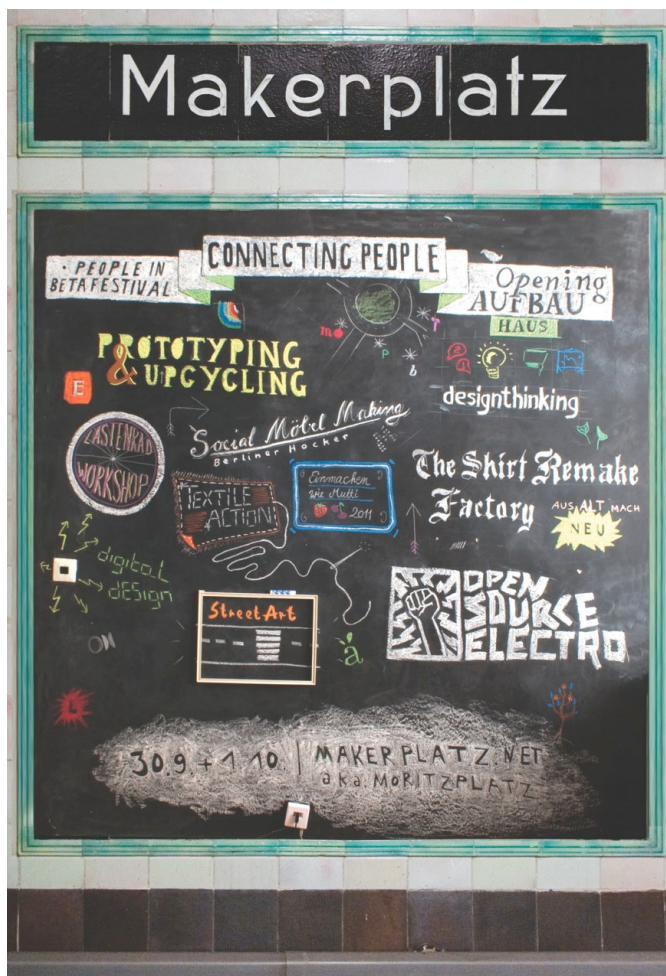 Makerplatz
CONNECTING PEOPLE
· PEOPLE IN
BETAFESTIVAL
Opening
AUFBAU
HAUS
PROTOTYPING
& UPCYCLING
E
mo
r
p
b
designthinking
LASTENRAD
WORKSHOP
Social Möbel Making
Berliner Hocker
TEXTILE
ACTION
Einmachen
wie Mutti
2011
The Shirt Remake
Factory
AUS ALT MACH
NEU
digital
design
StreetArt
OPEN
SOURCE
ELECTRO
ON
a
L
30.9. + 1.10. | MAKERPLATZ.NET
aka. MORITZPLATZ
T